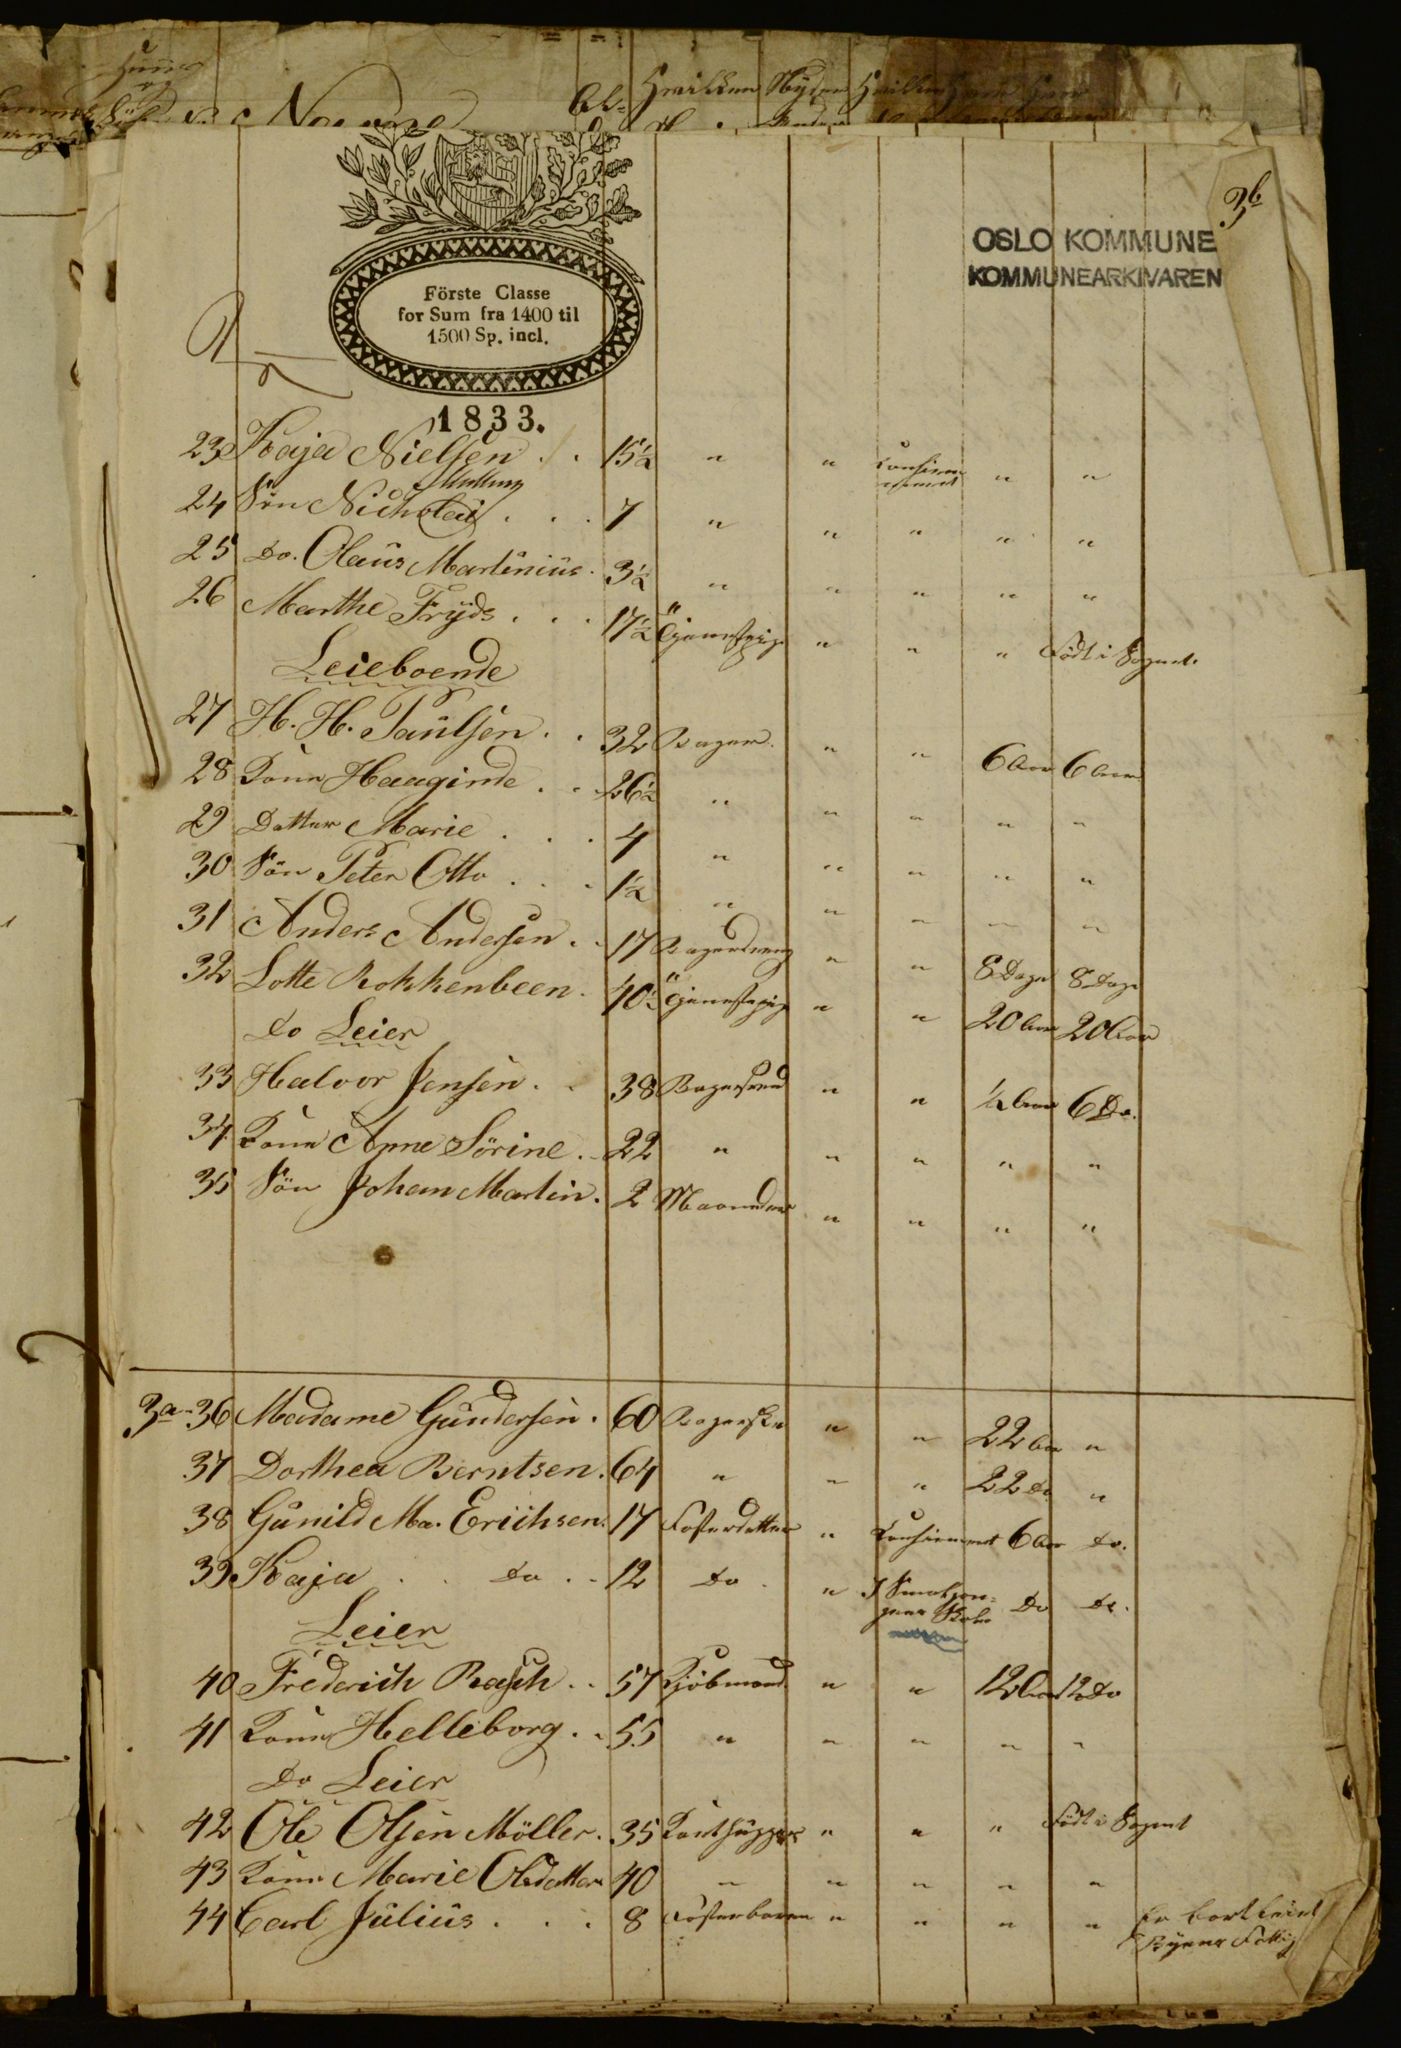 3b
OSLO KOMMUNE
KOMMUNEARKIVAREN
Förste Classe
for Sum fra 1400 til
1500 Sp. incl.
1833.
23 Kaja Nielsen . . 15½ " " Confirmeret " "
24 Sön Nicholai . . . 7 " " " " "
25 Do. Olaus Martinius . 3½ " " " " "
26 Marthe Fryds . . . 17½ Tjenestepige " " " Födt i Sognet.
Leieboende
27 H. H. Paulsen . . 32 Bager . " " 6 Aar 6 Aar
28 Kone Haagine . . 26½ " " " " "
29 Datter Marie . . . 4 " " " " "
30 Sön Peter Otto . . . 1½ " " " " "
31 Anders Andersen . . 17 Bagerdreng " " 8 Dage 8 Dage
32 Lotte Rokkenbeen . 40½ Tjenestepige " " 20 Aar 20 Aar
Do Leier
33 Halvor Jensen . . 38 Bagersvend " " ½ Aar 6 Do.
34 Kone Anne Sörine . . 22 " " " " "
35 Sön Johan Martin . 2 Maaneder " " " "
3a 36 Madame Gundersen . 60 Bagerske " " 22 Aar "
37 Dorthea Berntsen . 64 " " " 22 Do "
38 Gunild Ma. Erichsen . 17 Fosterdatter " Confirmeret 6 Aar Do.
39 Kaja . . Do . . 12 Do . " I Do Do.
Leier
40 Frederich Rasch . . 57 Kjöbmand " " 12 Aar 12 Do
41 Kone Helleborg . . 55 " " " " "
Do Leier
42 Ole Olsen Möller . 35 " " " Födt i Sognet
43 Kone Marie Olsdatter 40 " " " " "
44 Carl Julius . . . 8 Fosterbarn " " " " Er bortleiet
Byens Fattig